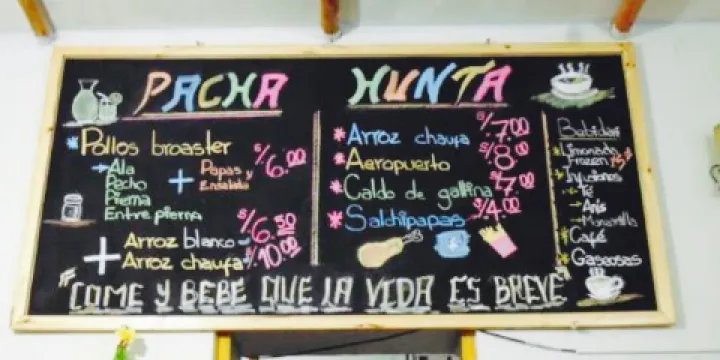 PACHA HUNTA
*Pollos broaster S/6.00
→Ala
Pecho
Pierna
Entre pierna
+ Papas y
Ensalada
+ Arroz blanco - S/6.50
Arroz chaufa S/10.00
*Arroz chaufa S/7.00
*Aeropuerto S/8.00
*Caldo de gallina S/7.00
*Salchipapas S/4.00
Bebidas
*Limonada
Frozen
*Infusiones
→Té
→Anis
→Manzanilla
*Café
*Gaseosas
"COME Y BEBE QUE LA VIDA ES BREVE"